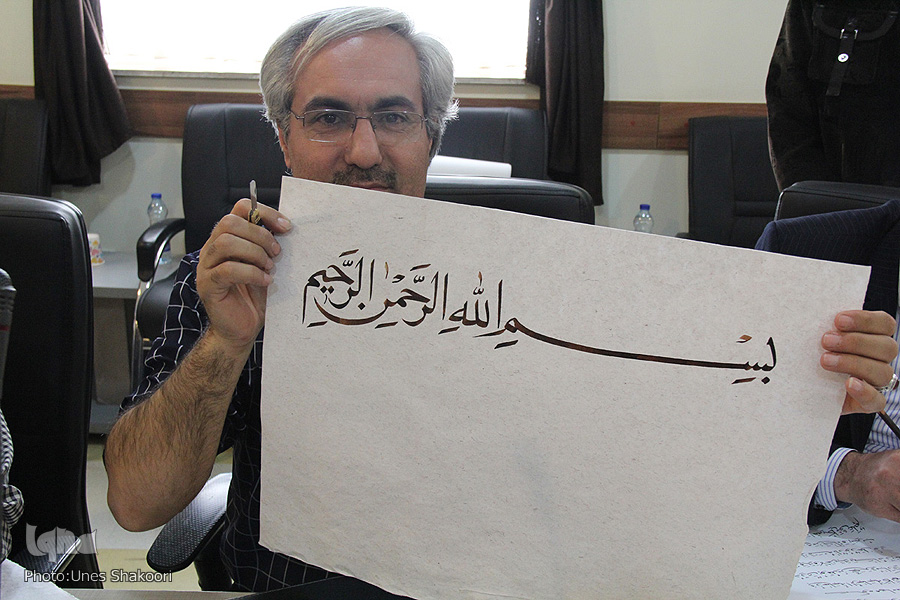 بِسْمِ اللهِ الرَّحْمٰنِ الرَّحِيمِ
Photo:Unes Shakoori